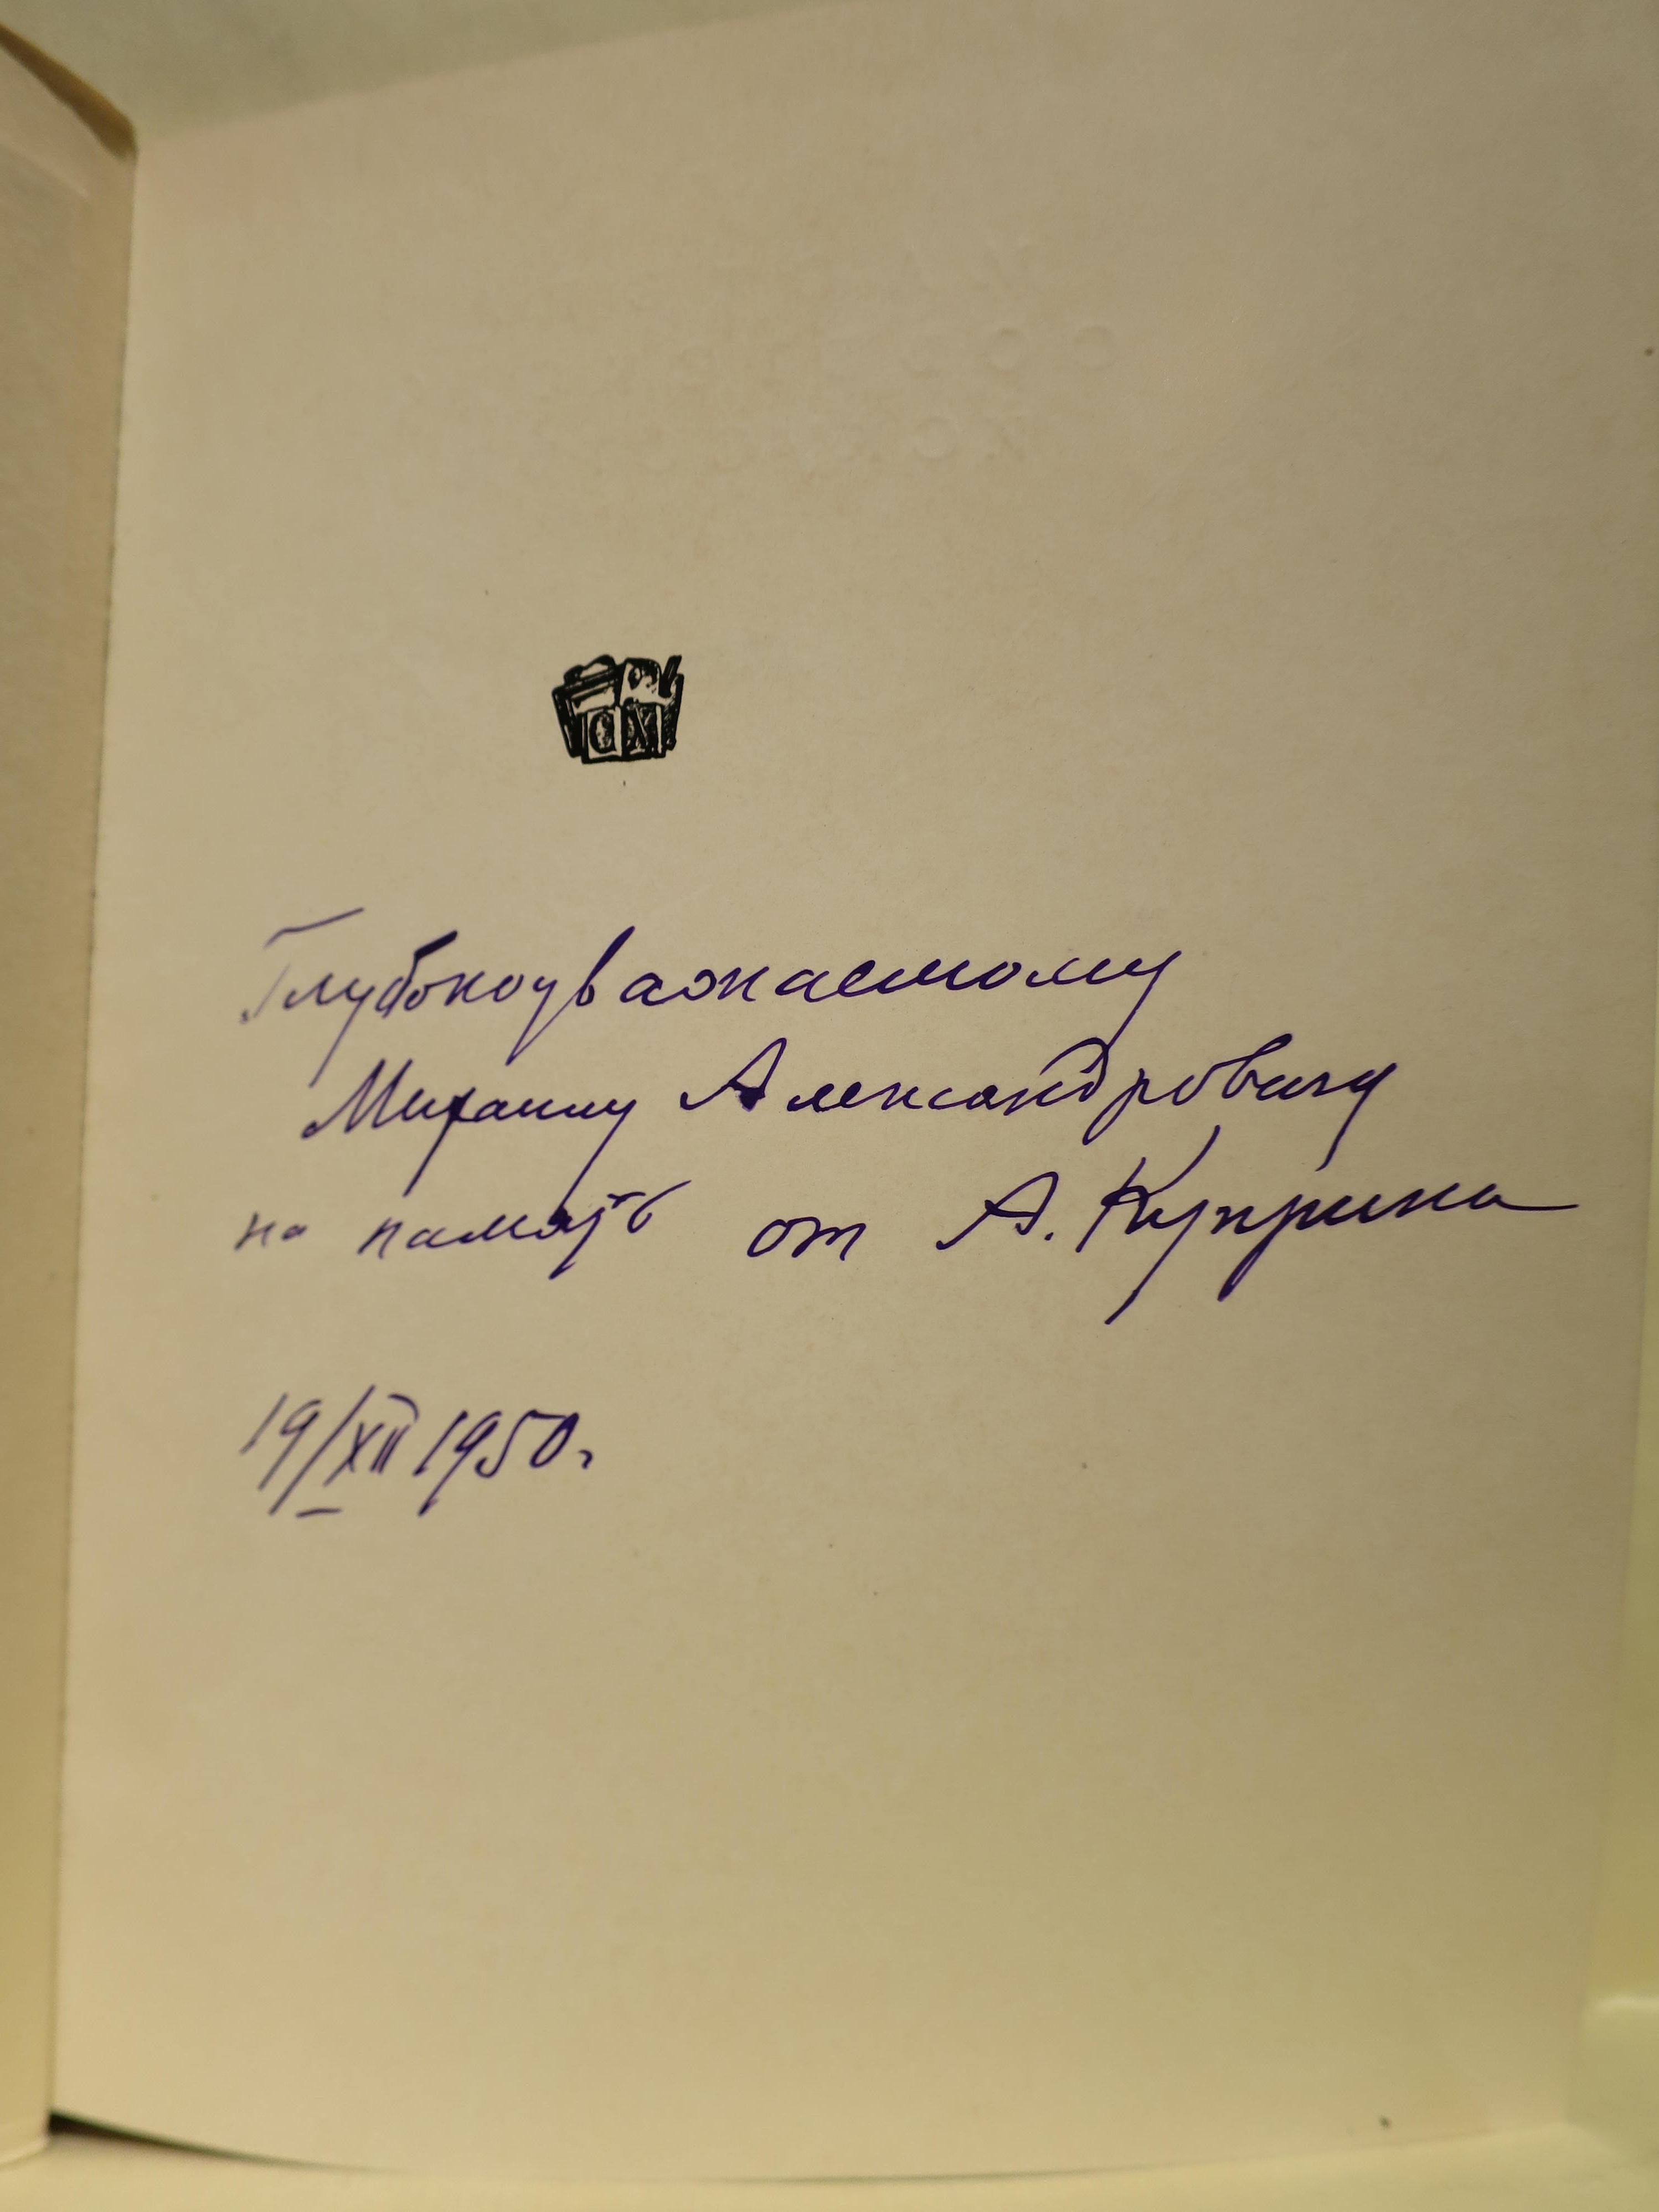 СХ
Глубокоуважаемому
Михаилу Александровичу
на память от А. Куприна
19/XII 1950г